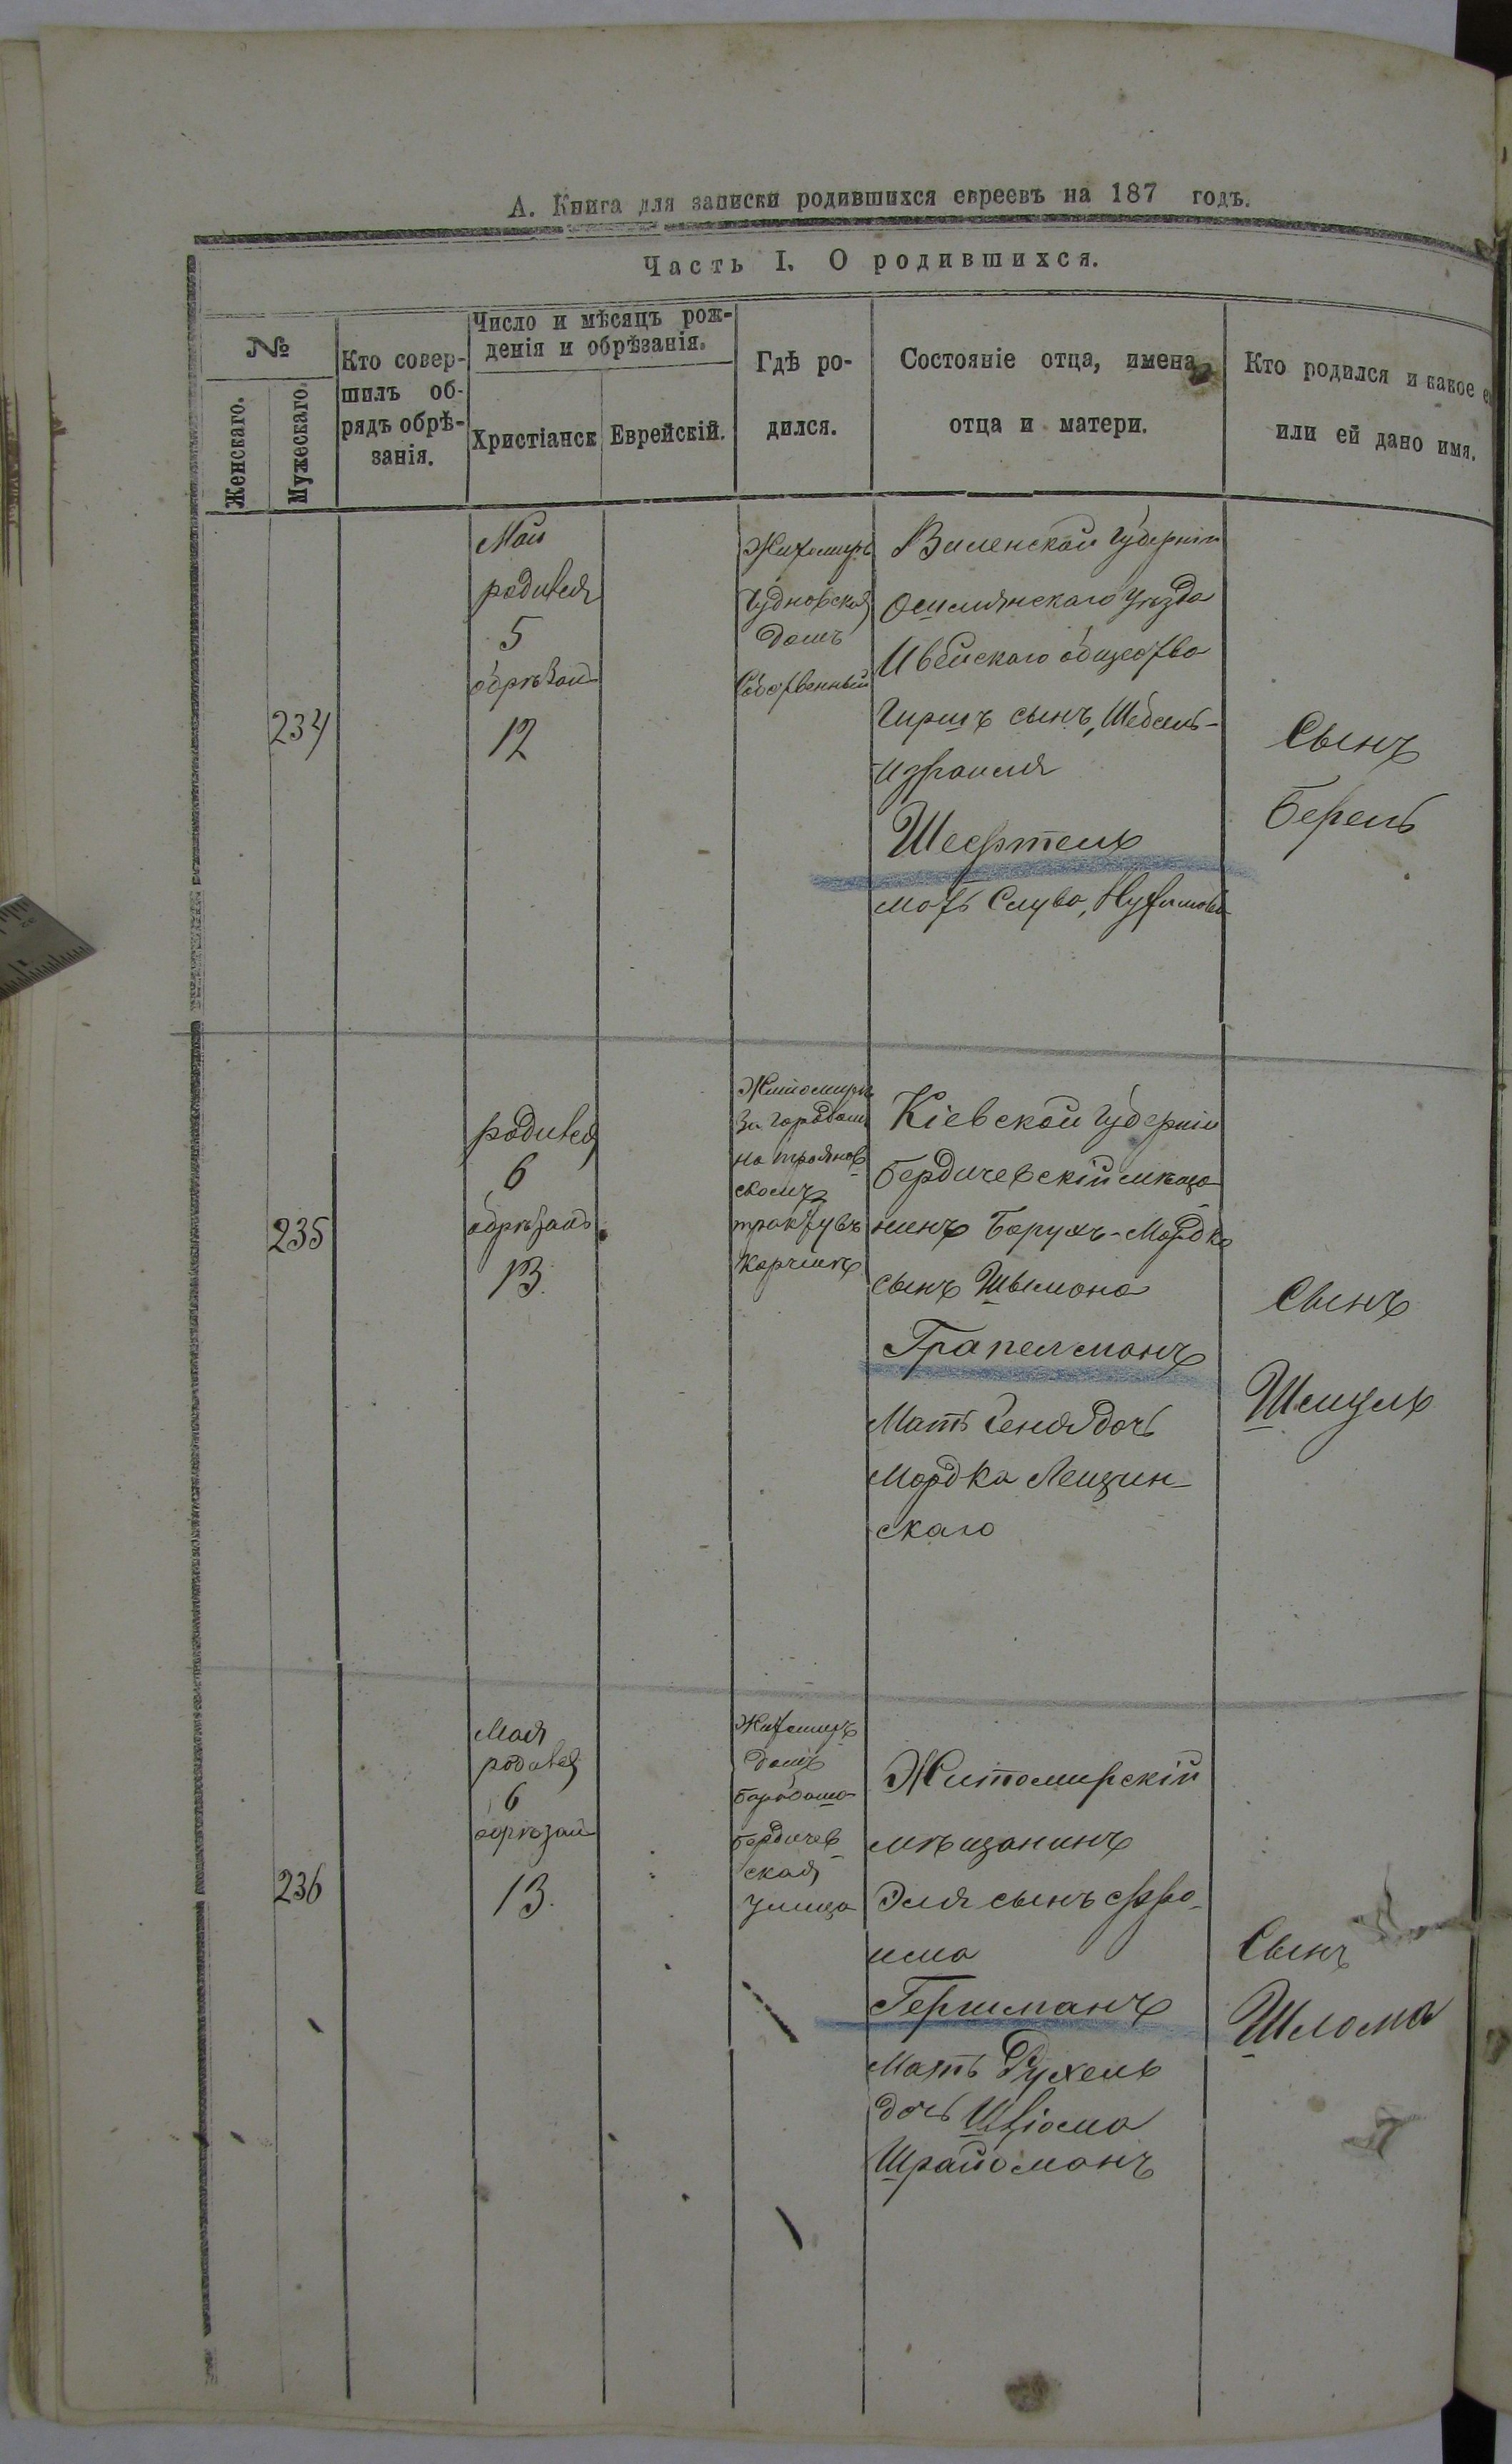 А. Книга для записки родившихся евреевъ на 187 годъ.
Часть I. О родившихся.
№
Женскаго.
Мужескаго
Кто совер-
шилъ об-
рядъ обрѣ-
занія.
Число и мѣсяцъ рож-
денія и обрѣзанія.
Христіанск
Еврейскій.
Гдѣ ро-
дился.
Состояніе отца, имена
отца и матери.
Кто родился и какое е
или ей дано имя.
234
Май
родився
5
обрѣзан
12
Житомиръ
Чудновская
домъ
Собственный
Виленской Губерніи
Ошмянскаго Уѣзда
Ивейскаго общества
Гиршъ сынъ, Шебсель-
Израиля
Шефтель
мать Слува, Нухимова
Сынъ
Берель
235
родився
6
обрѣзанъ
13.
Житомиръ
За городомъ
на троянов
скомъ
трактѣ въ
Корчмѣ
Кіевской Губерніи
Бердичевскій мѣща
нинъ Барухъ-Мордко
сынъ Шымона
Грапелманъ
Мать Геня дочь
Мордка Лещин-
скаго
Сынъ
Шмуль
236
Мая
родився
6
обрѣзан
13.
Житомиръ
домъ
Бердичев
ская
Улица
Житомирскій
мѣщанинъ
Эля сынъ Эфро-
има
Гершманъ
Мать Рухель
дочь
Сынъ
Шлома